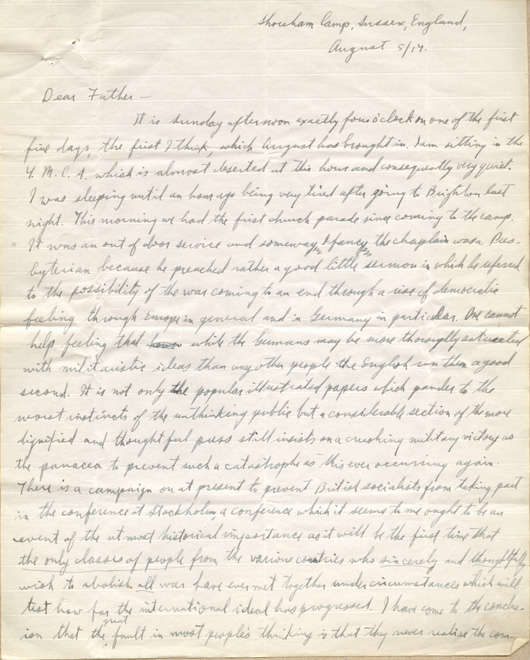 Shoreham Camp, Sussex, England,
August 5/17.
Dear Father —
It is sunday afternoon exactly four o'clock on one of the first
five days, the first I think, which August has brought in. I am sitting in the
Y. M. C. A. which is almost deserted at this hour and consequently very quiet.
I was sleeping until an hour ago being very tired after going to Brighton last
night. This morning we had the first church parade since coming to the camp.
It was an out of door service and someway I fancy the chaplain was a Pres-
byterian because he preached rather a good little sermon in which he referred
to the possibility of the war coming to an end through a rise of democratic
feeling through Europe in general and in Germany in particular. One cannot
help feeling that while the Germans may be more thoroughly saturated
with militaristic ideas than any other people the English run them a good
second. It is not only the popular illustrated papers which pander to the
worst instincts of the unthinking public but a considerable section of the more
dignified and thoughtful press still insists on a crushing military victory as
the panacea to prevent such a catastrophe as this ever occurring again.
There is a campaign on at present to prevent British socialists from taking part
in the conference at Stockholm a conference which it seems to me ought to be an
event of the utmost historical importance as it will be the first time that
the only classes of people from the various countries who sincerely and thoughtfully
wish to abolish all war have ever met together under circumstances which will
test how far the international ideal has progressed. I have come to the conclus-
ion that the great fault in most people's thinking is that they never realise the